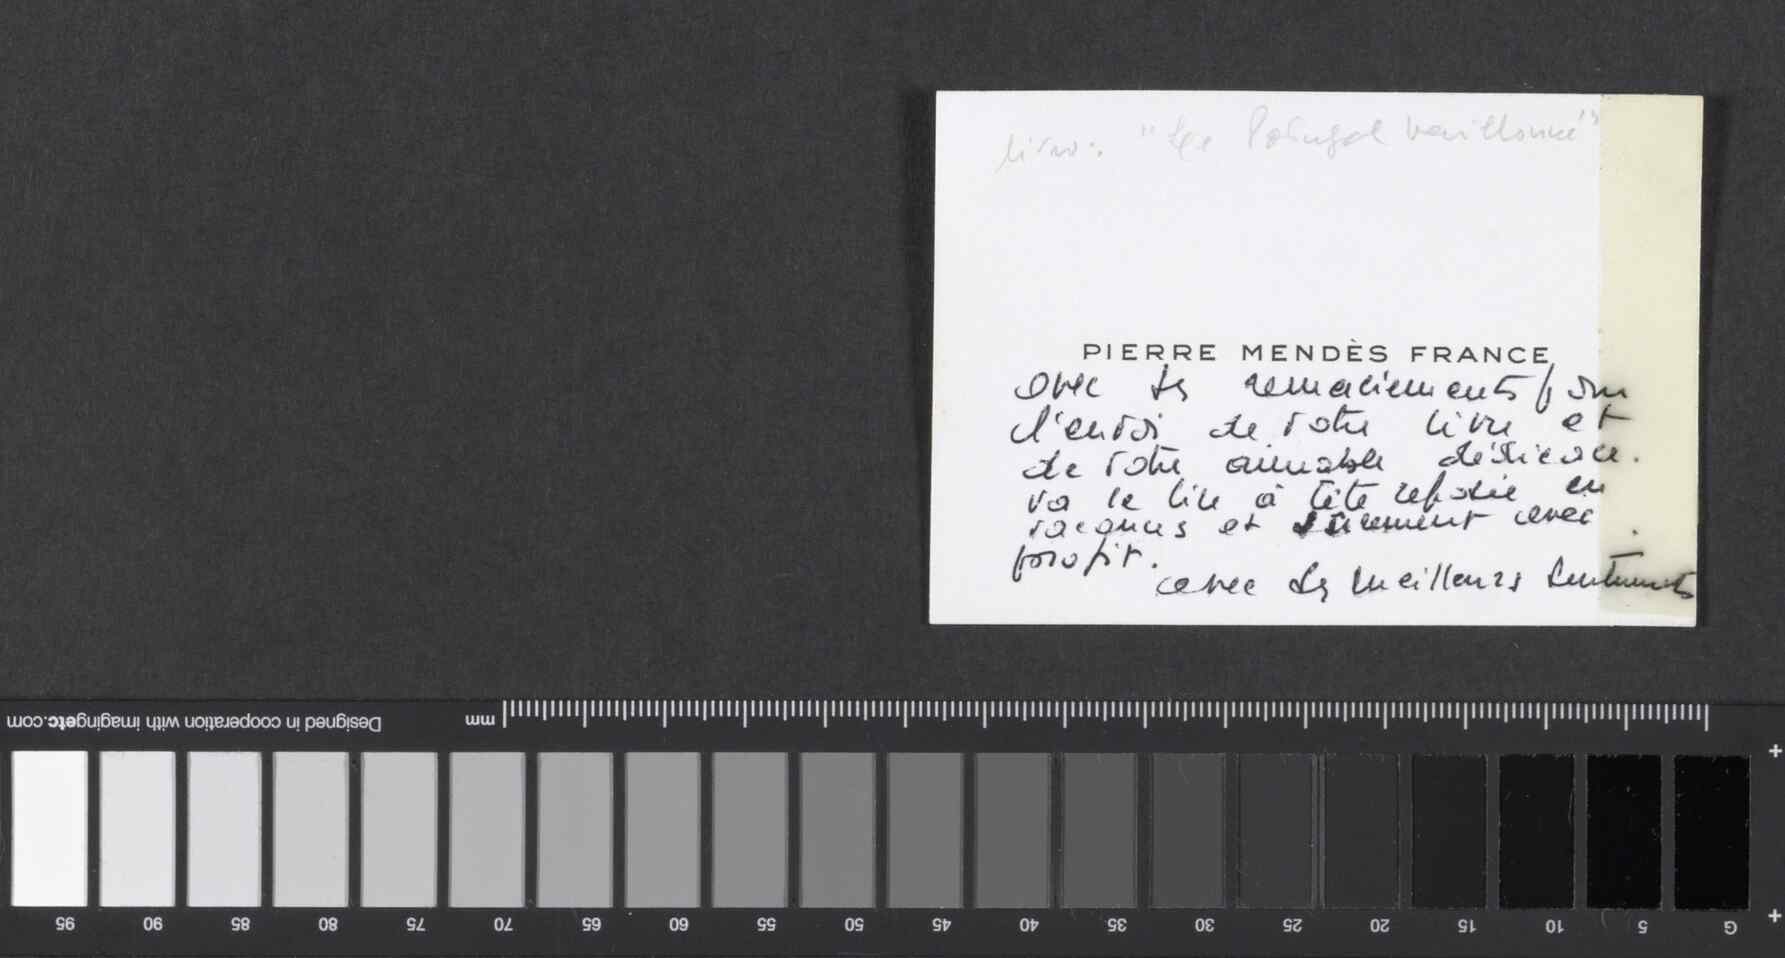 livro: "Le Portugal baillonné"
PIERRE MENDÈS FRANCE
avec ses remerciements pour
l'envoi de votre livre et
de votre aimable dédicace.
Va le lire à tête reposée en
vacances et sûrement avec
profit.
avec ses meilleurs sentiments
Designed in cooperation with imagingetc.com
mm
95 90 85 80 75 70 65 60 55 50 45 40 35 30 25 20 15 10 5 G